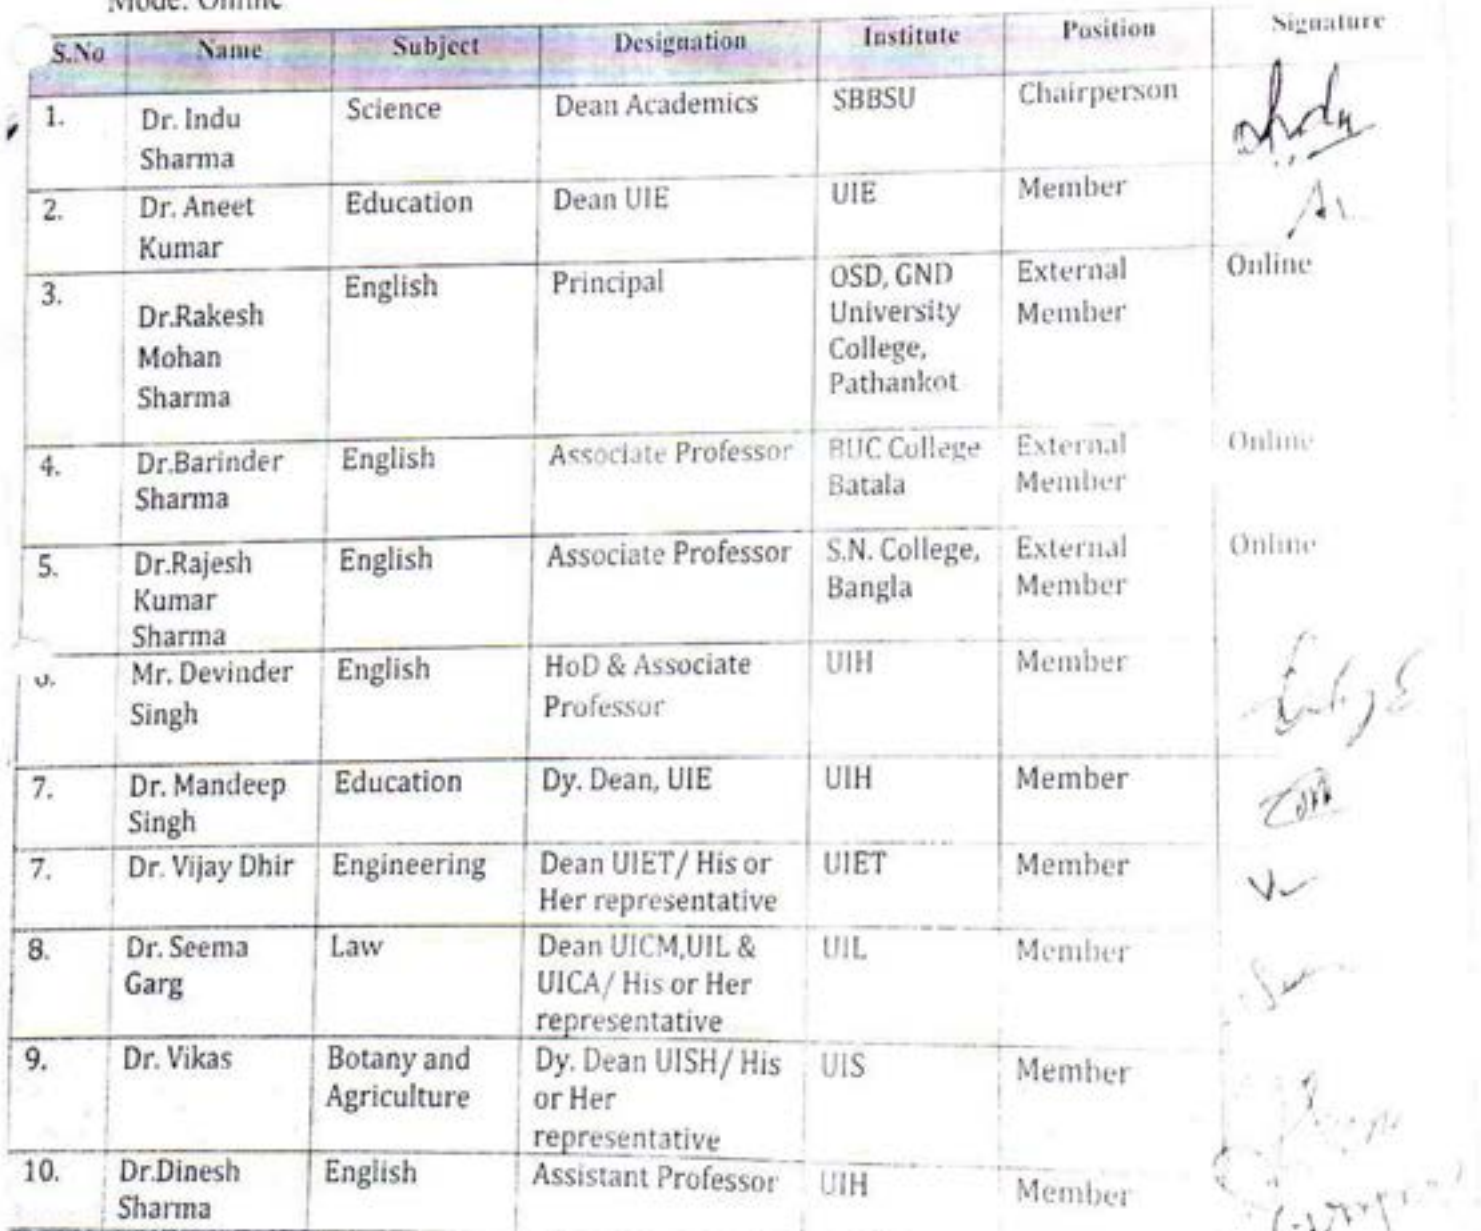 Mode: Online
S.No Name Subject Designation Institute Position Signature
1. Dr. Indu Sharma Science Dean Academics SBBSU Chairperson
2. Dr. Aneet Kumar Education Dean UIE UIE Member
3. Dr.Rakesh Mohan Sharma English Principal OSD, GND University College, Pathankot External Member Online
4. Dr.Barinder Sharma English Associate Professor BUC College Batala External Member Online
5. Dr.Rajesh Kumar Sharma English Associate Professor S.N. College, Bangla External Member Online
Mr. Devinder Singh English HoD & Associate Professor UIH Member
7. Dr. Mandeep Singh Education Dy. Dean, UIE UIH Member
7. Dr. Vijay Dhir Engineering Dean UIET/ His or Her representative UIET Member
8. Dr. Seema Garg Law Dean UICM,UIL & UICA/ His or Her representative UIL Member
9. Dr. Vikas Botany and Agriculture Dy. Dean UISH/ His or Her representative UIS Member
10. Dr.Dinesh Sharma English Assistant Professor UIH Member